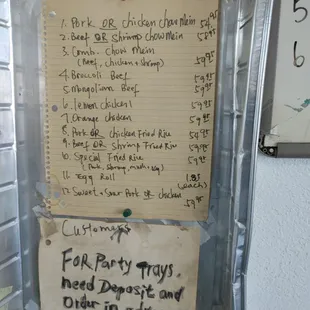 1. Pork OR chicken chow mein 54.95
2. Beef OR Shrimp chow mein 58.95
3. Comb. Chow mein
(Beef, chicken + shrimp) 59.95
4. Broccoli Beef 59.95
5. mongolian Beef 59.95
6. lemon chicken 59.95
7. Orange chicken 59.95
8. Pork OR chicken Fried Rice 59.95
9. Beef OR Shrimp Fried Rice 59.95
10. Special Fried Rice 59.95
11. Egg Roll 1.85
(each)
12. Sweet + Sour Pork OR chicken
59.95
Customers
FOR Party trays.
need Deposit and
Order in
5
6